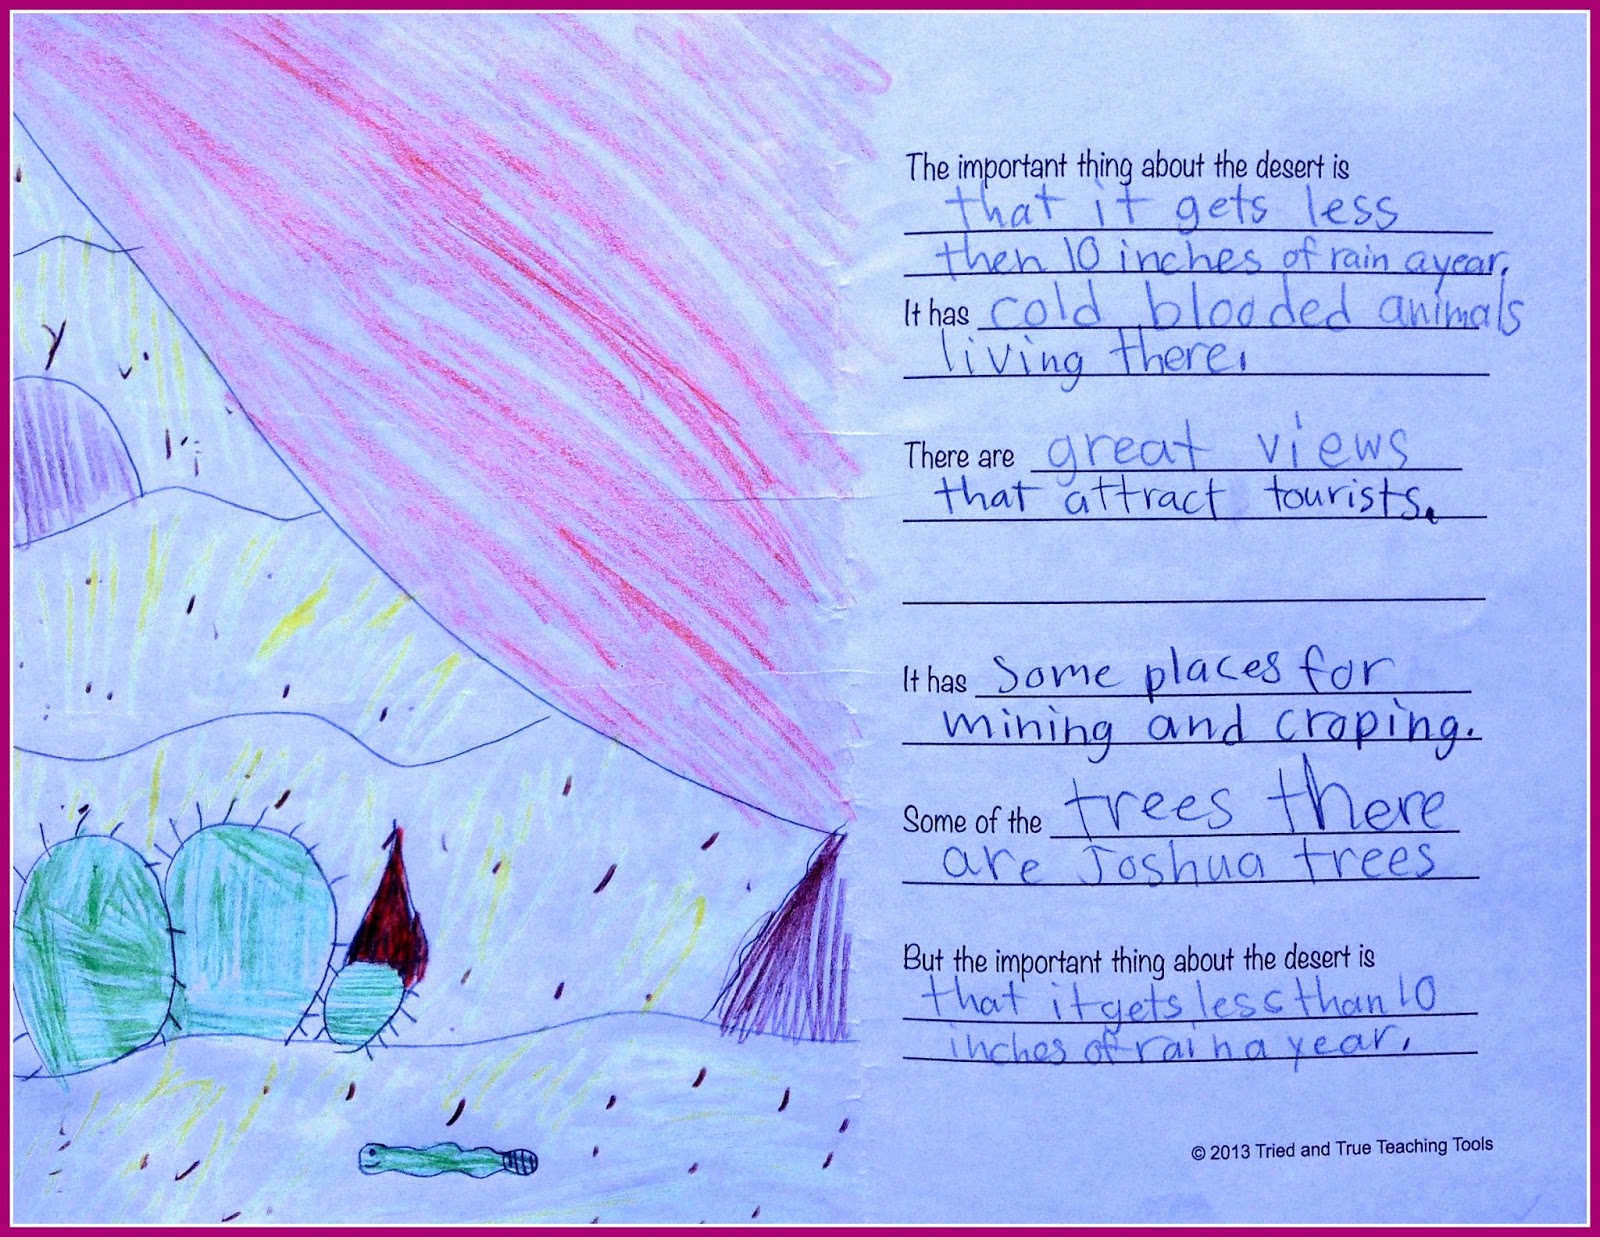 The important thing about the desert is
that it gets less
then 10 inches of rain a year.
It has cold blooded animals
living there.
There are great views
that attract tourists.
It has some places for
mining and croping.
Some of the trees there
are Joshua trees
But the important thing about the desert is
that it gets less than 10
inches of rain a year.
© 2013 Tried and True Teaching Tools